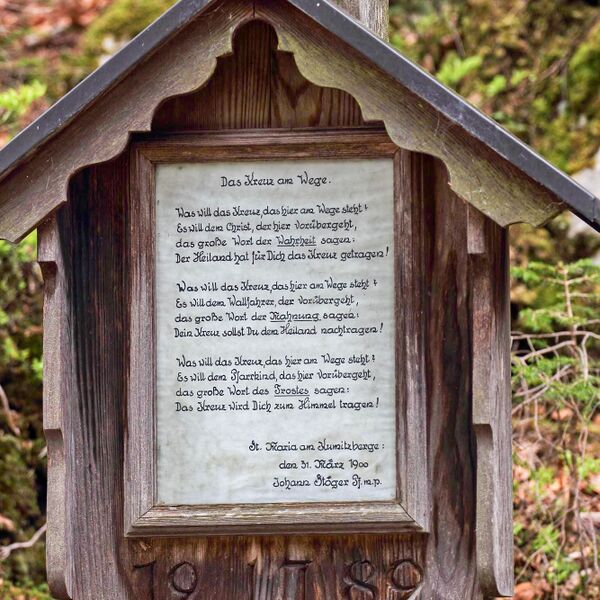 Das Kreuz am Wege.
Was will das Kreuz, das hier am Wege steht?
Es will dem Christ, der hier vorübergeht,
das große Wort der Wahrheit sagen:
Der Heiland hat für Dich das Kreuz getragen!
Was will das Kreuz, das hier am Wege steht?
Es will dem Wallfahrer, der vorübergeht,
das große Wort der Mahnung sagen:
Dein Kreuz sollst Du dem Heiland nachtragen!
Was will das Kreuz, das hier am Wege steht?
Es will dem Pfarrkind, das hier vorübergeht,
das große Wort des Trostes sagen:
Das Kreuz wird Dich zum Himmel tragen!
St. Maria am Kumitzberge:
den 31. März 1900
Johann Stöger Pf.m.p.
19 17 89